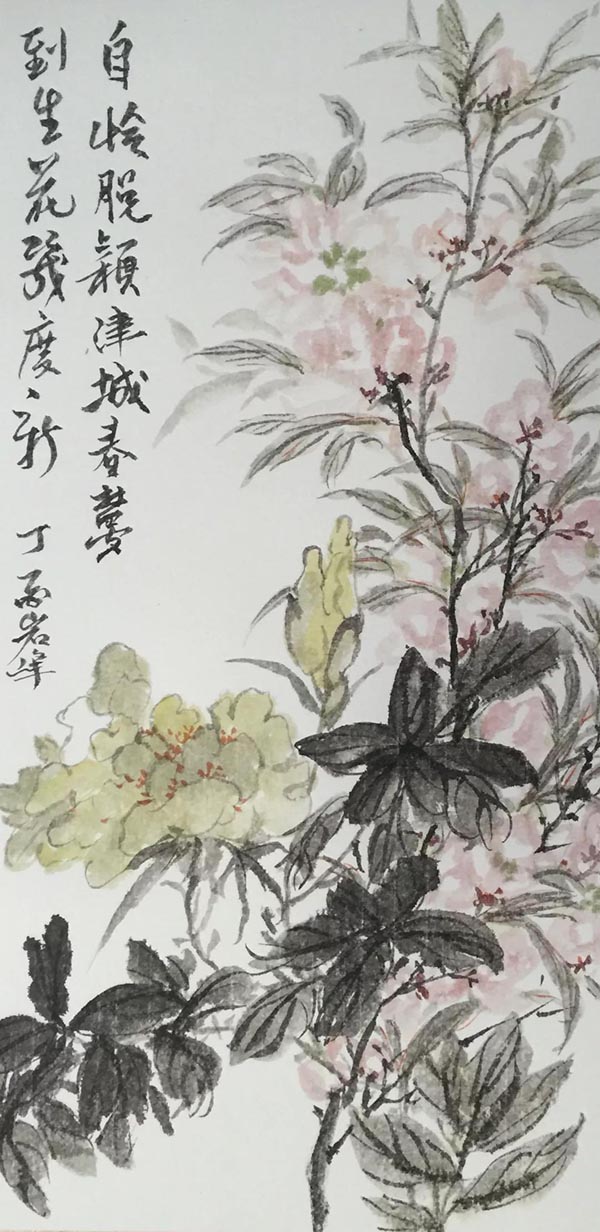 自怜脱颖津城春梦
到生花几度々新
丁酉岩峰